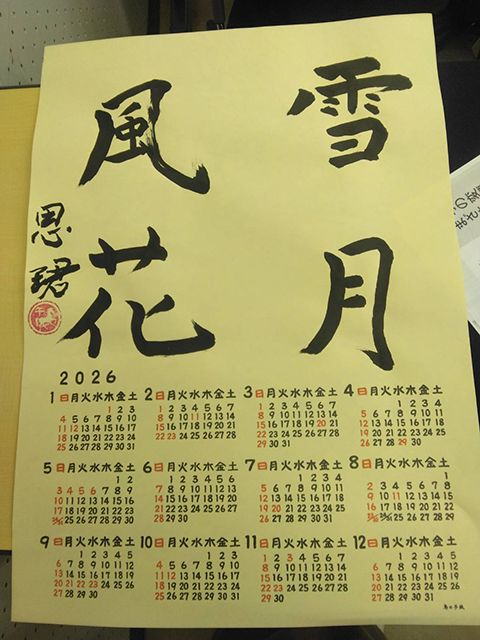 雪月
風花
恩珺
2026
1 日月火水木金土
1 2 3
4 5 6 7 8 9 10
11 12 13 14 15 16 17
18 19 20 21 22 23 24
25 26 27 28 29 30 31
2 日月火水木金土
1 2 3 4 5 6 7
8 9 10 11 12 13 14
15 16 17 18 19 20 21
22 23 24 25 26 27 28
3 日月火水木金土
1 2 3 4 5 6 7
8 9 10 11 12 13 14
15 16 17 18 19 20 21
22 23 24 25 26 27 28
29 30 31
4 日月火水木金土
1 2 3 4
5 6 7 8 9 10 11
12 13 14 15 16 17 18
19 20 21 22 23 24 25
26 27 28 29 30
5 日月火水木金土
1 2
3 4 5 6 7 8 9
10 11 12 13 14 15 16
17 18 19 20 21 22 23
24/31 25 26 27 28 29 30
6 日月火水木金土
1 2 3 4 5 6
7 8 9 10 11 12 13
14 15 16 17 18 19 20
21 22 23 24 25 26 27
28 29 30
7 日月火水木金土
1 2 3 4
5 6 7 8 9 10 11
12 13 14 15 16 17 18
19 20 21 22 23 24 25
26 27 28 29 30 31
8 日月火水木金土
1
2 3 4 5 6 7 8
9 10 11 12 13 14 15
16 17 18 19 20 21 22
23/30 24/31 25 26 27 28 29
9 日月火水木金土
1 2 3 4 5
6 7 8 9 10 11 12
13 14 15 16 17 18 19
20 21 22 23 24 25 26
27 28 29 30
10 日月火水木金土
1 2 3
4 5 6 7 8 9 10
11 12 13 14 15 16 17
18 19 20 21 22 23 24
25 26 27 28 29 30 31
11 日月火水木金土
1 2 3 4 5 6 7
8 9 10 11 12 13 14
15 16 17 18 19 20 21
22 23 24 25 26 27 28
29 30
12 日月火水木金土
1 2 3 4 5
6 7 8 9 10 11 12
13 14 15 16 17 18 19
20 21 22 23 24 25 26
27 28 29 30 31